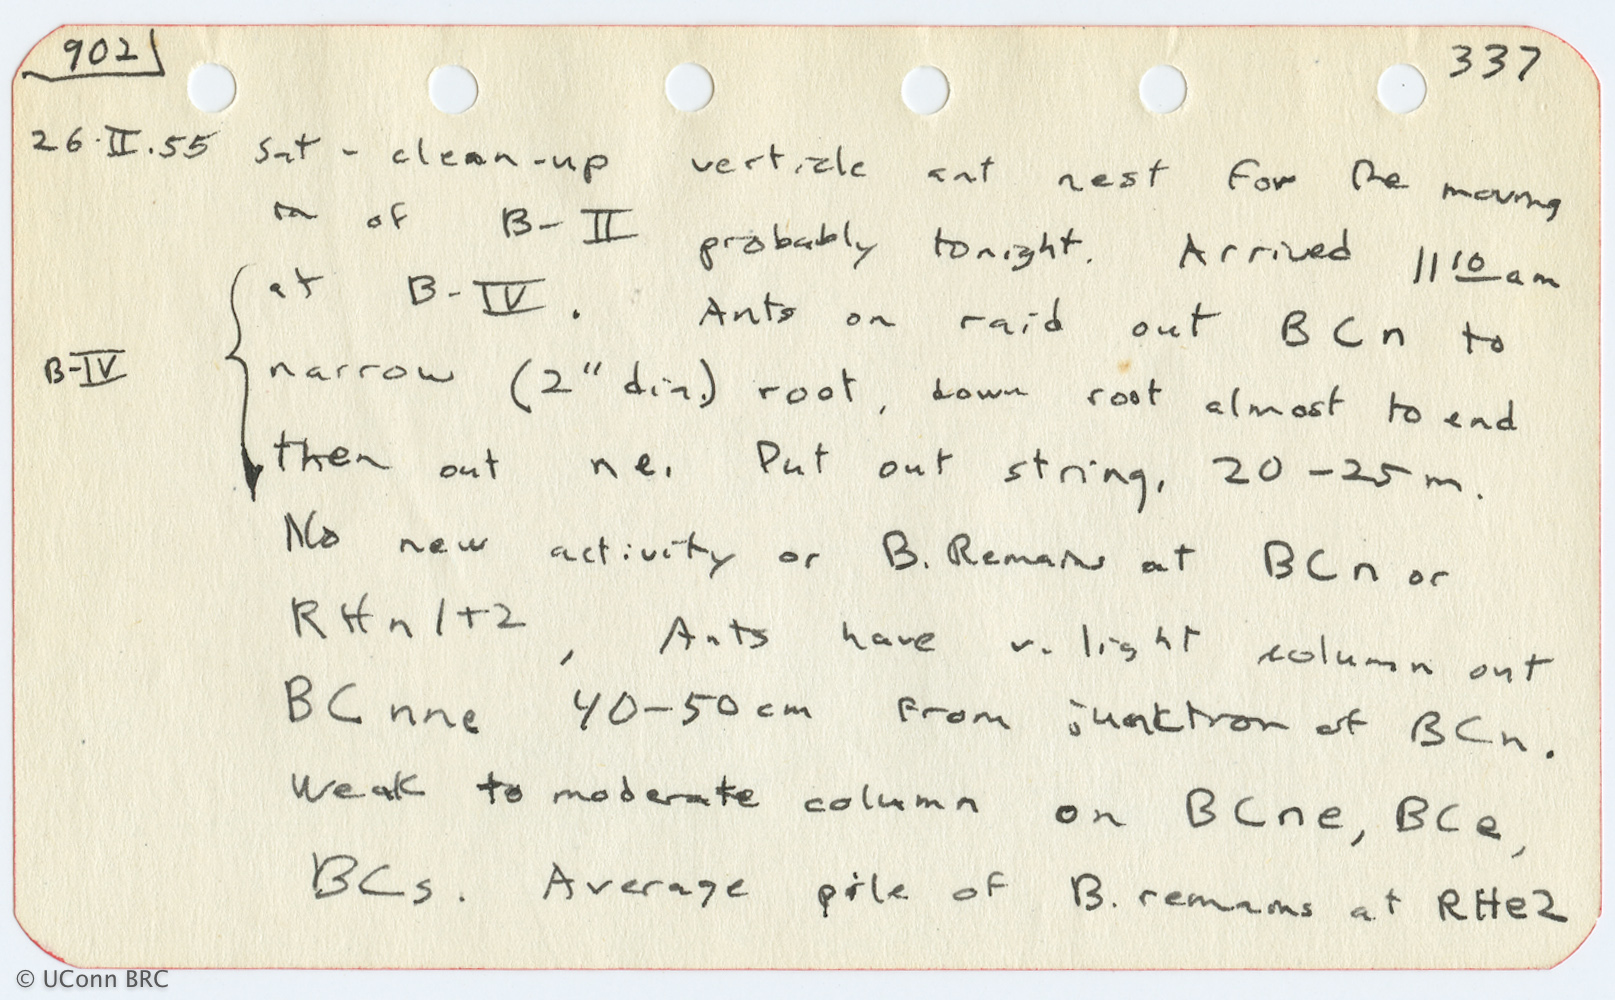 902
337
26.II.55 Sat - clean-up verticle ant nest for the moving
in of B-II probably tonight. Arrived 11 10 am
at B-IV. Ants on raid out BCn to
B-IV
narrow (2" dia.) root, down root almost to end
then out ne. Put out string, 20-25m.
No new activity or B. Remains at BCn or
RHn1+2, Ants have v. light column out
BCnne 40-50cm from junktion of BCn.
Weak to moderate column on BCne, BCe,
BCs. Average pile of B. remains at RHe2
© UConn BRC